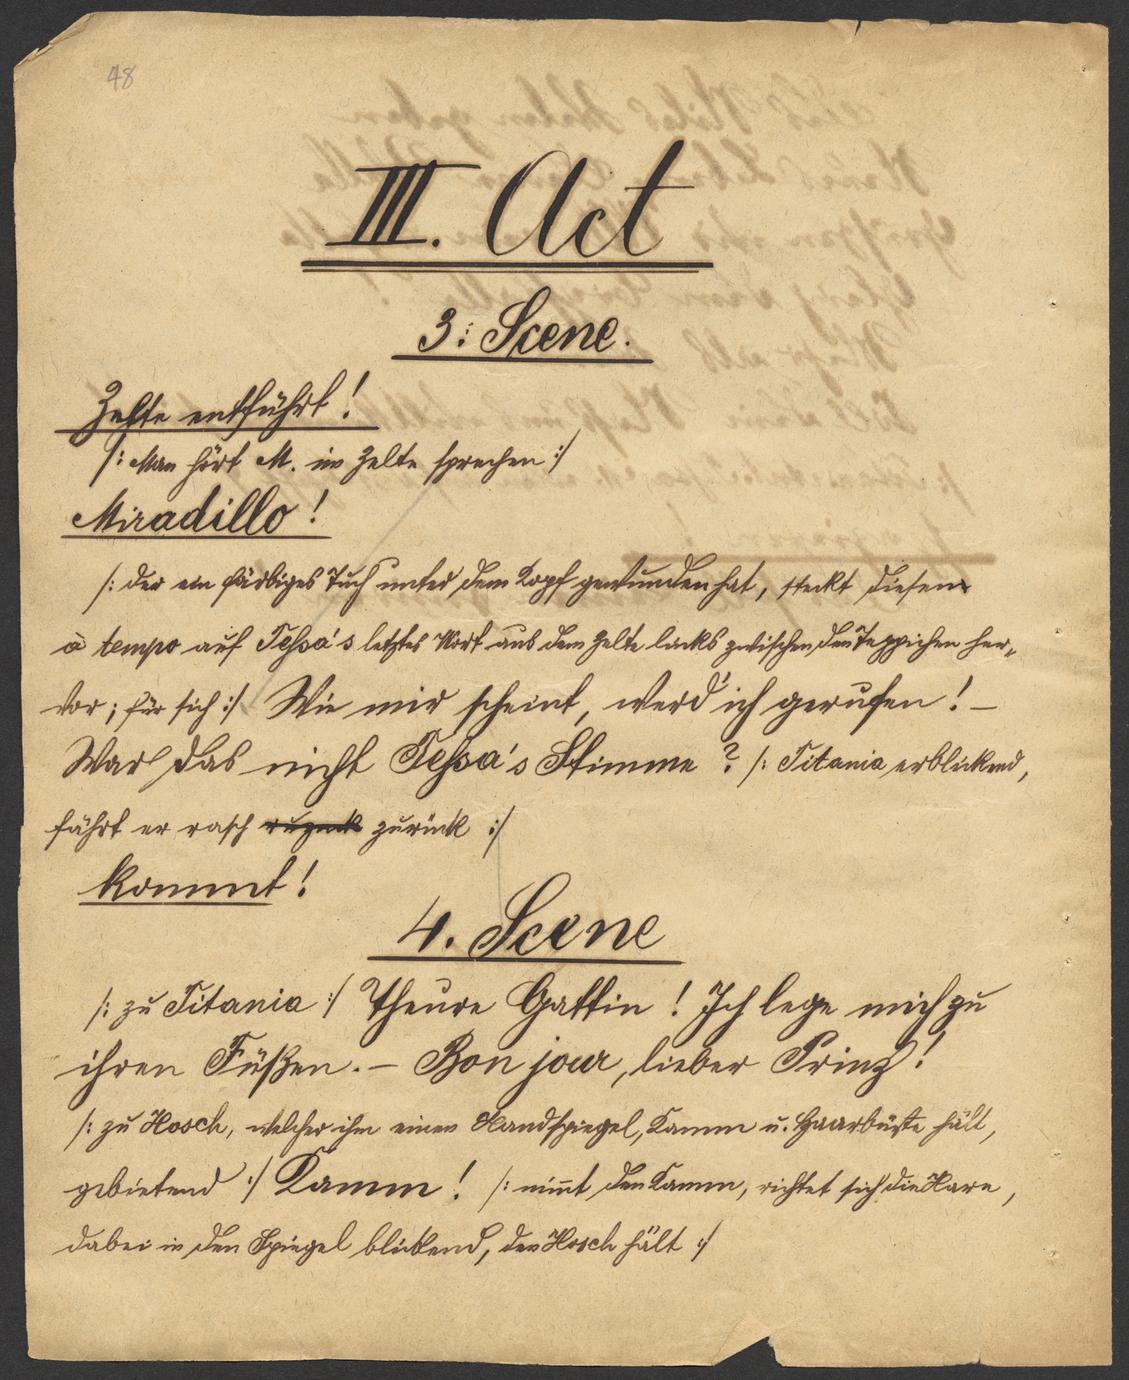 48
III. Act
3: Scene.
Zelte entführt!
/: Man hört M. im Zelte sprechen :/
Miradillo!
/: der ein färbiges Tuch unter dem Kopf gewunden hat, steckt diesen
à tempo auf Tessa's letztes Wort aus dem Zelte links zwischen den Teppichen her-
vor; für sich :/ Wie mir scheint, werd' ich gerufen! –
War das nicht Tessa's Stimme? /: Titania erblickend,
fährt er rasch ruzück zurück :/
kommt!
4. Scene
/: zu Titania :/ Theure Gattin! Ich lege mich zu
ihren Füßen. – Bon jour, lieber Prinz!
/: zu Hosch, welcher ihm einen Handspiegel, Kamm u. Haarbüste hält,
gebietend :/ Kamm! /: nim̄t den Kamm, richtet sich die Hare,
dabei in den Spiegel blickend, den Hosch hält :/